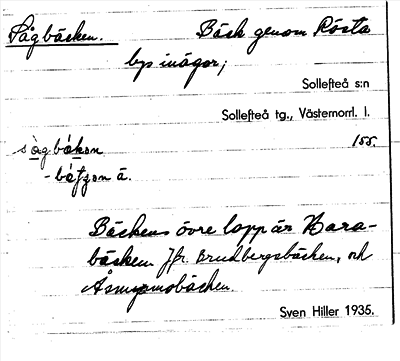 Sågbäcken. Bäck genom Rösta
bys inägor;
Sollefteå s:n
Sollefteå tg., Västernorrl. l.
155.
Bäckens övre lopp är Kara-
bäcken Jfr. Brudbergsbäcken, och
Sven Hiller 1935.